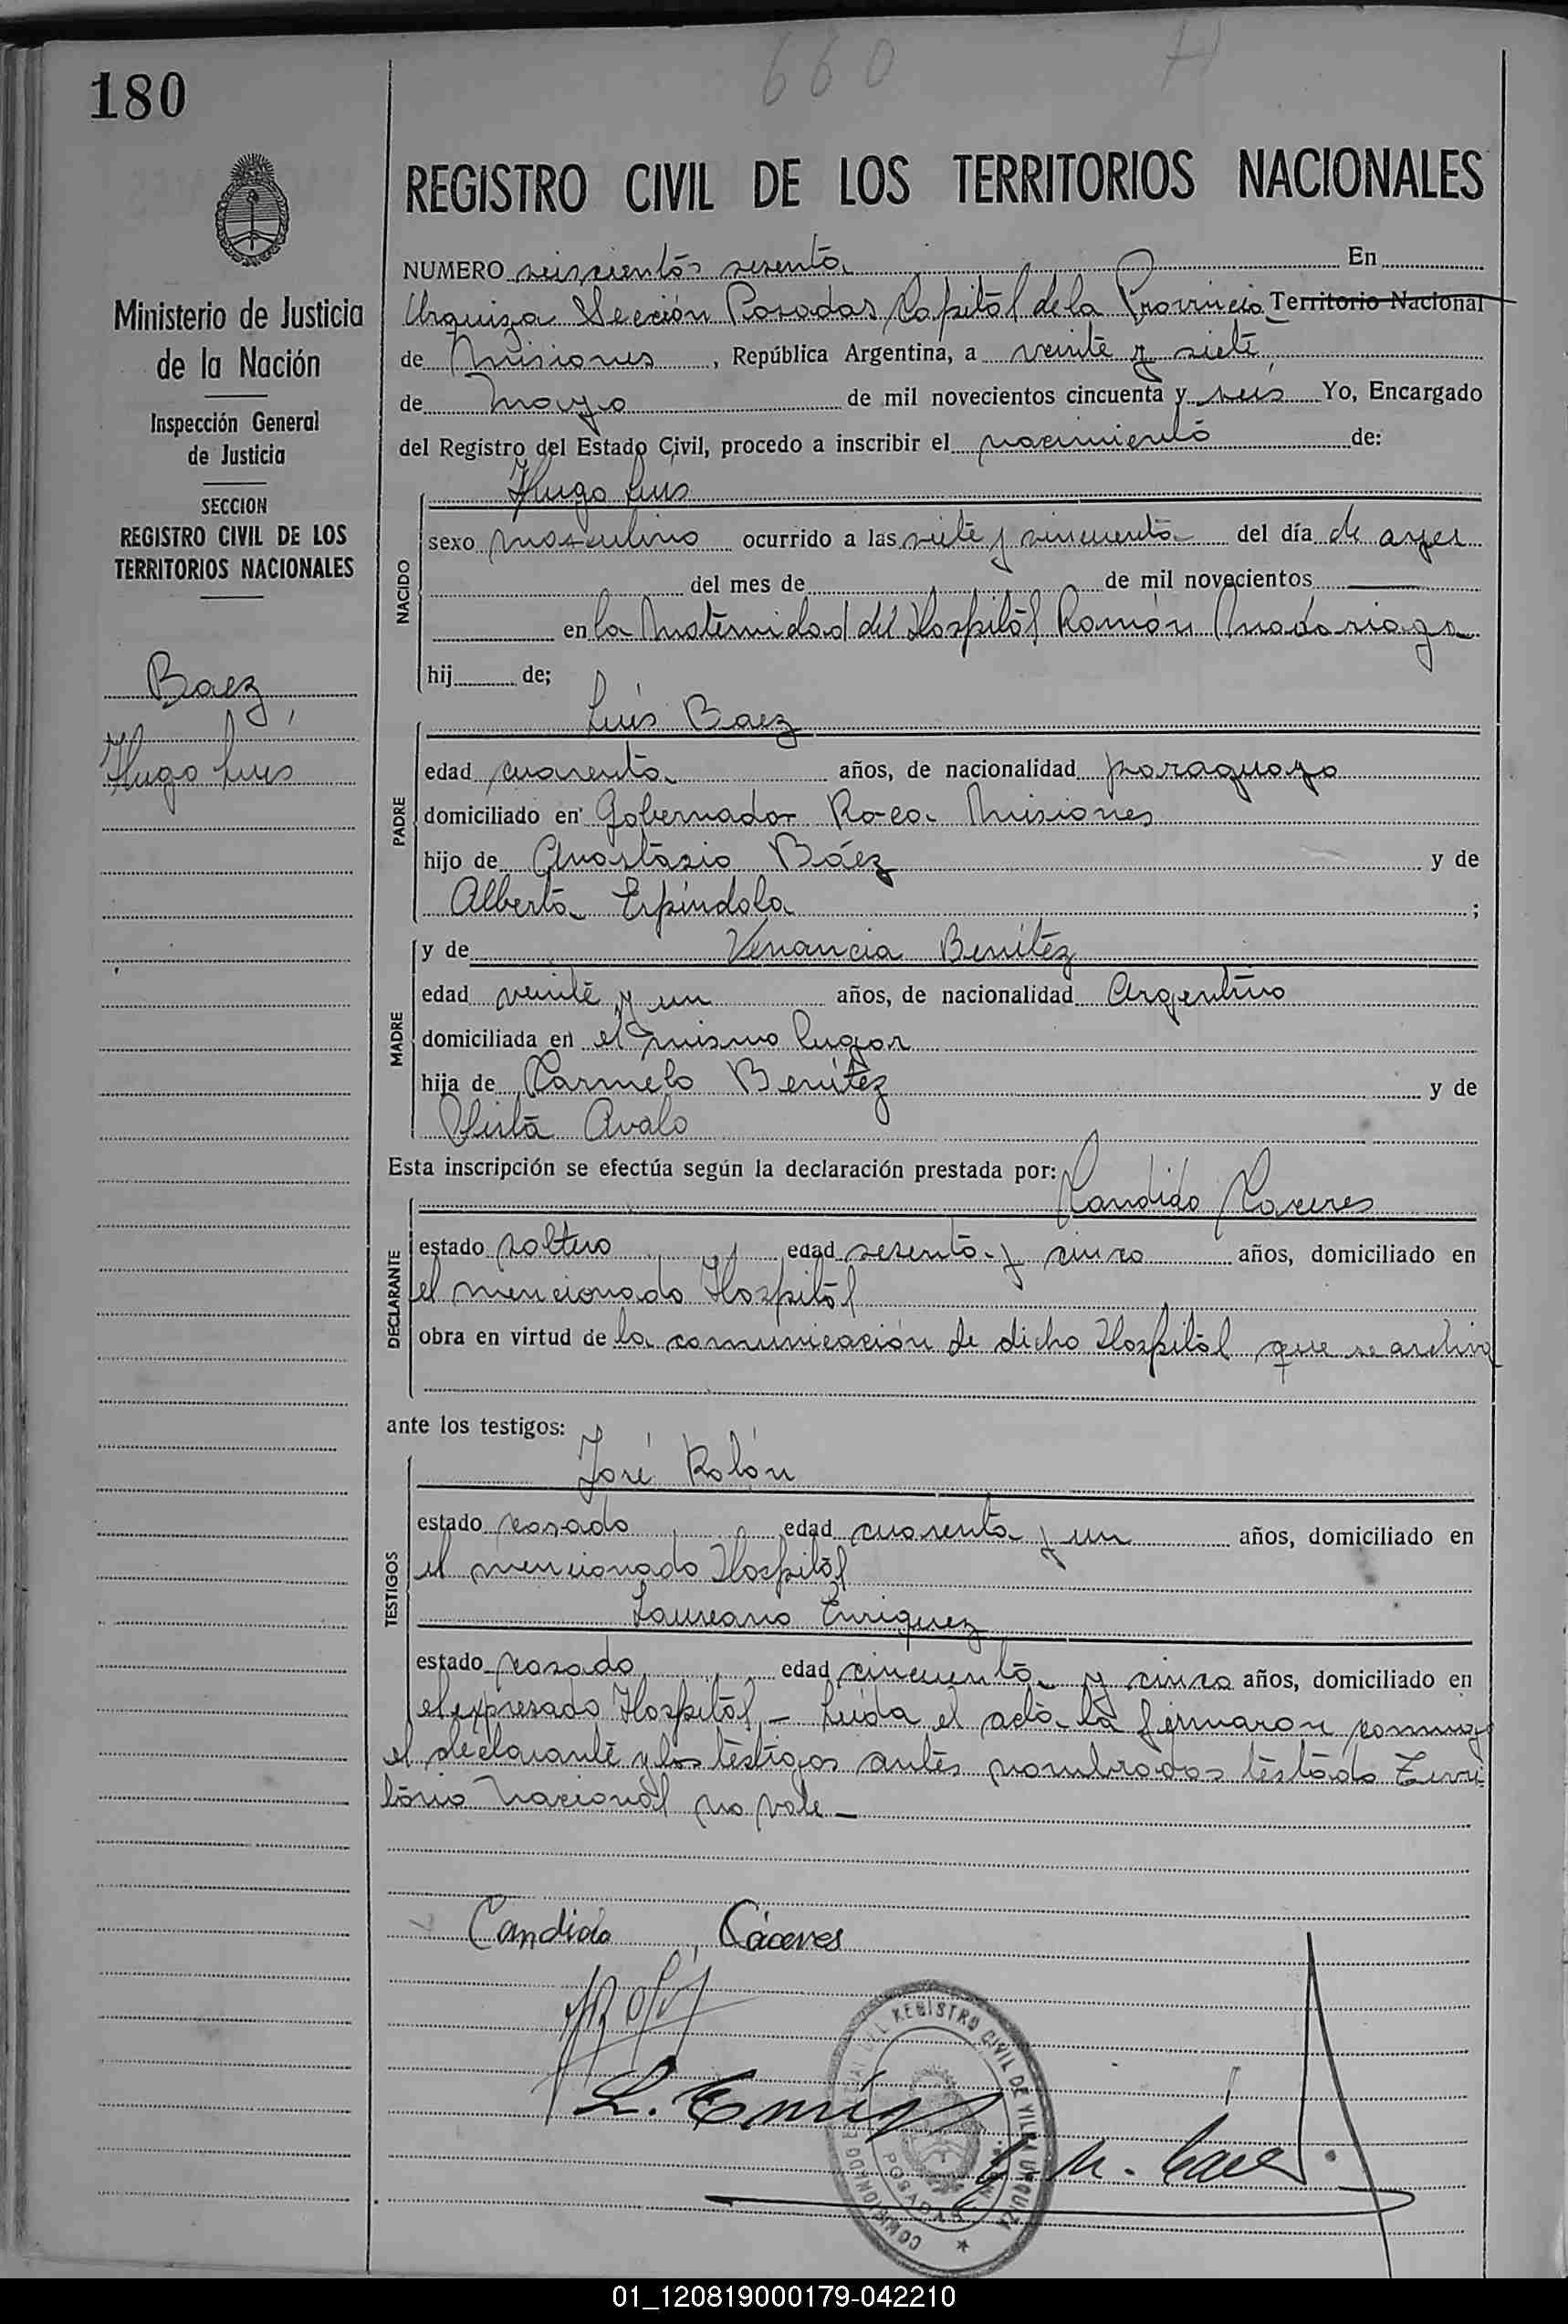 660 H
180
REGISTRO CIVIL DE LOS TERRITORIOS NACIONALES
Ministerio de Justicia
de la Nación
Inspección General
de Justicia
SECCION
REGISTRO CIVIL DE LOS
TERRITORIOS NACIONALES
Baez,
Hugo Luis
NUMERO seiscientos sesenta En
Urquiza Sección Posadas Capital de la Provincia Territorio Nacional
de Misiones, República Argentina, a veinte y siete
de Mayo de mil novecientos cincuenta y seis Yo, Encargado
del Registro del Estado Civil, procedo a inscribir el nacimiento de:
NACIDO
Hugo Luis
sexo masculino ocurrido a las siete y cincuenta del día de ayer
del mes de de mil novecientos
en la Maternidad del Hospital Ramón Madariaga
hij de;
PADRE
Luis Baez
edad cuarenta años, de nacionalidad paraguayo
domiciliado en Gobernador Roca Misiones
hijo de Anastasio Báez y de
Alberta Espíndola ;
MADRE
y de Venancia Benítez
edad veinte y un años, de nacionalidad Argentina
domiciliada en el mismo lugar
hija de Carmelo Benítez y de
Avalo
Esta inscripción se efectúa según la declaración prestada por: Candido Caceres
DECLARANTE
estado soltero edad sesenta y cinco años, domiciliado en
el mencionado Hospital
obra en virtud de la comunicación de dicho Hospital que se archiva
ante los testigos:
TESTIGOS
José Rolón
estado casado edad cuarenta y un años, domiciliado en
el mencionado Hospital
Laureano Enriquez
estado casado edad cincuenta y cinco años, domiciliado en
el expresado Hospital - Leída el acta la firmaron conmigo
el declarante y los testigos antes nombrados testado Terri
torio Nacional no vale -
Candido Cáceres
L. Enriq
REGISTRO CIVIL DE VILLA URQUIZA
POSADAS
01_120819000179-042210